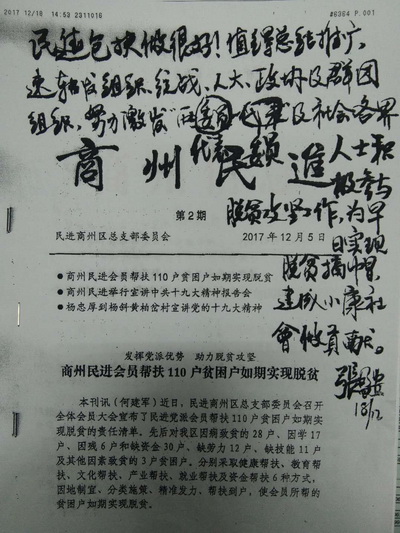 2017 12/18 14:53 2311016 #6364 P.001
民进包扶做很好！值得总结推广，
速转发组织、统战、人大、政协及群团
组织，努力激发"两代表一委员"及社会各界
人士积
极参与
脱贫攻坚工作，为早
日实现
脱贫摘帽
建成小康社
会做贡献。
18/12
商州民進
第2期
民进商州区总支部委员会 2017年12月5日
●商州民进会员帮扶110户贫困户如期实现脱贫
●商州民进举行宣讲中共十九大精神报告会
●杨忠厚到杨斜黄柏岔村宣讲党的十九大精神
发挥党派优势 助力脱贫攻坚
商州民进会员帮扶110户贫困户如期实现脱贫
本刊讯（何建军）近日，民进商州区总支部委员会召开
全体会员大会宣布了民进党派会员帮扶110户贫困户如期实
现脱贫的责任清单。先后对我区因病致贫的28户、因学17
户、因残6户和缺资金30户、缺劳力12户、缺技能11户
及其他因素致贫的3户贫困户。分别采取健康帮扶、教育帮
扶、文化帮扶、产业帮扶、就业帮扶及资金帮扶6种方式，
因地制宜、分类施策、精准发力、帮扶到户，使会员所帮的
贫困户如期实现脱贫。